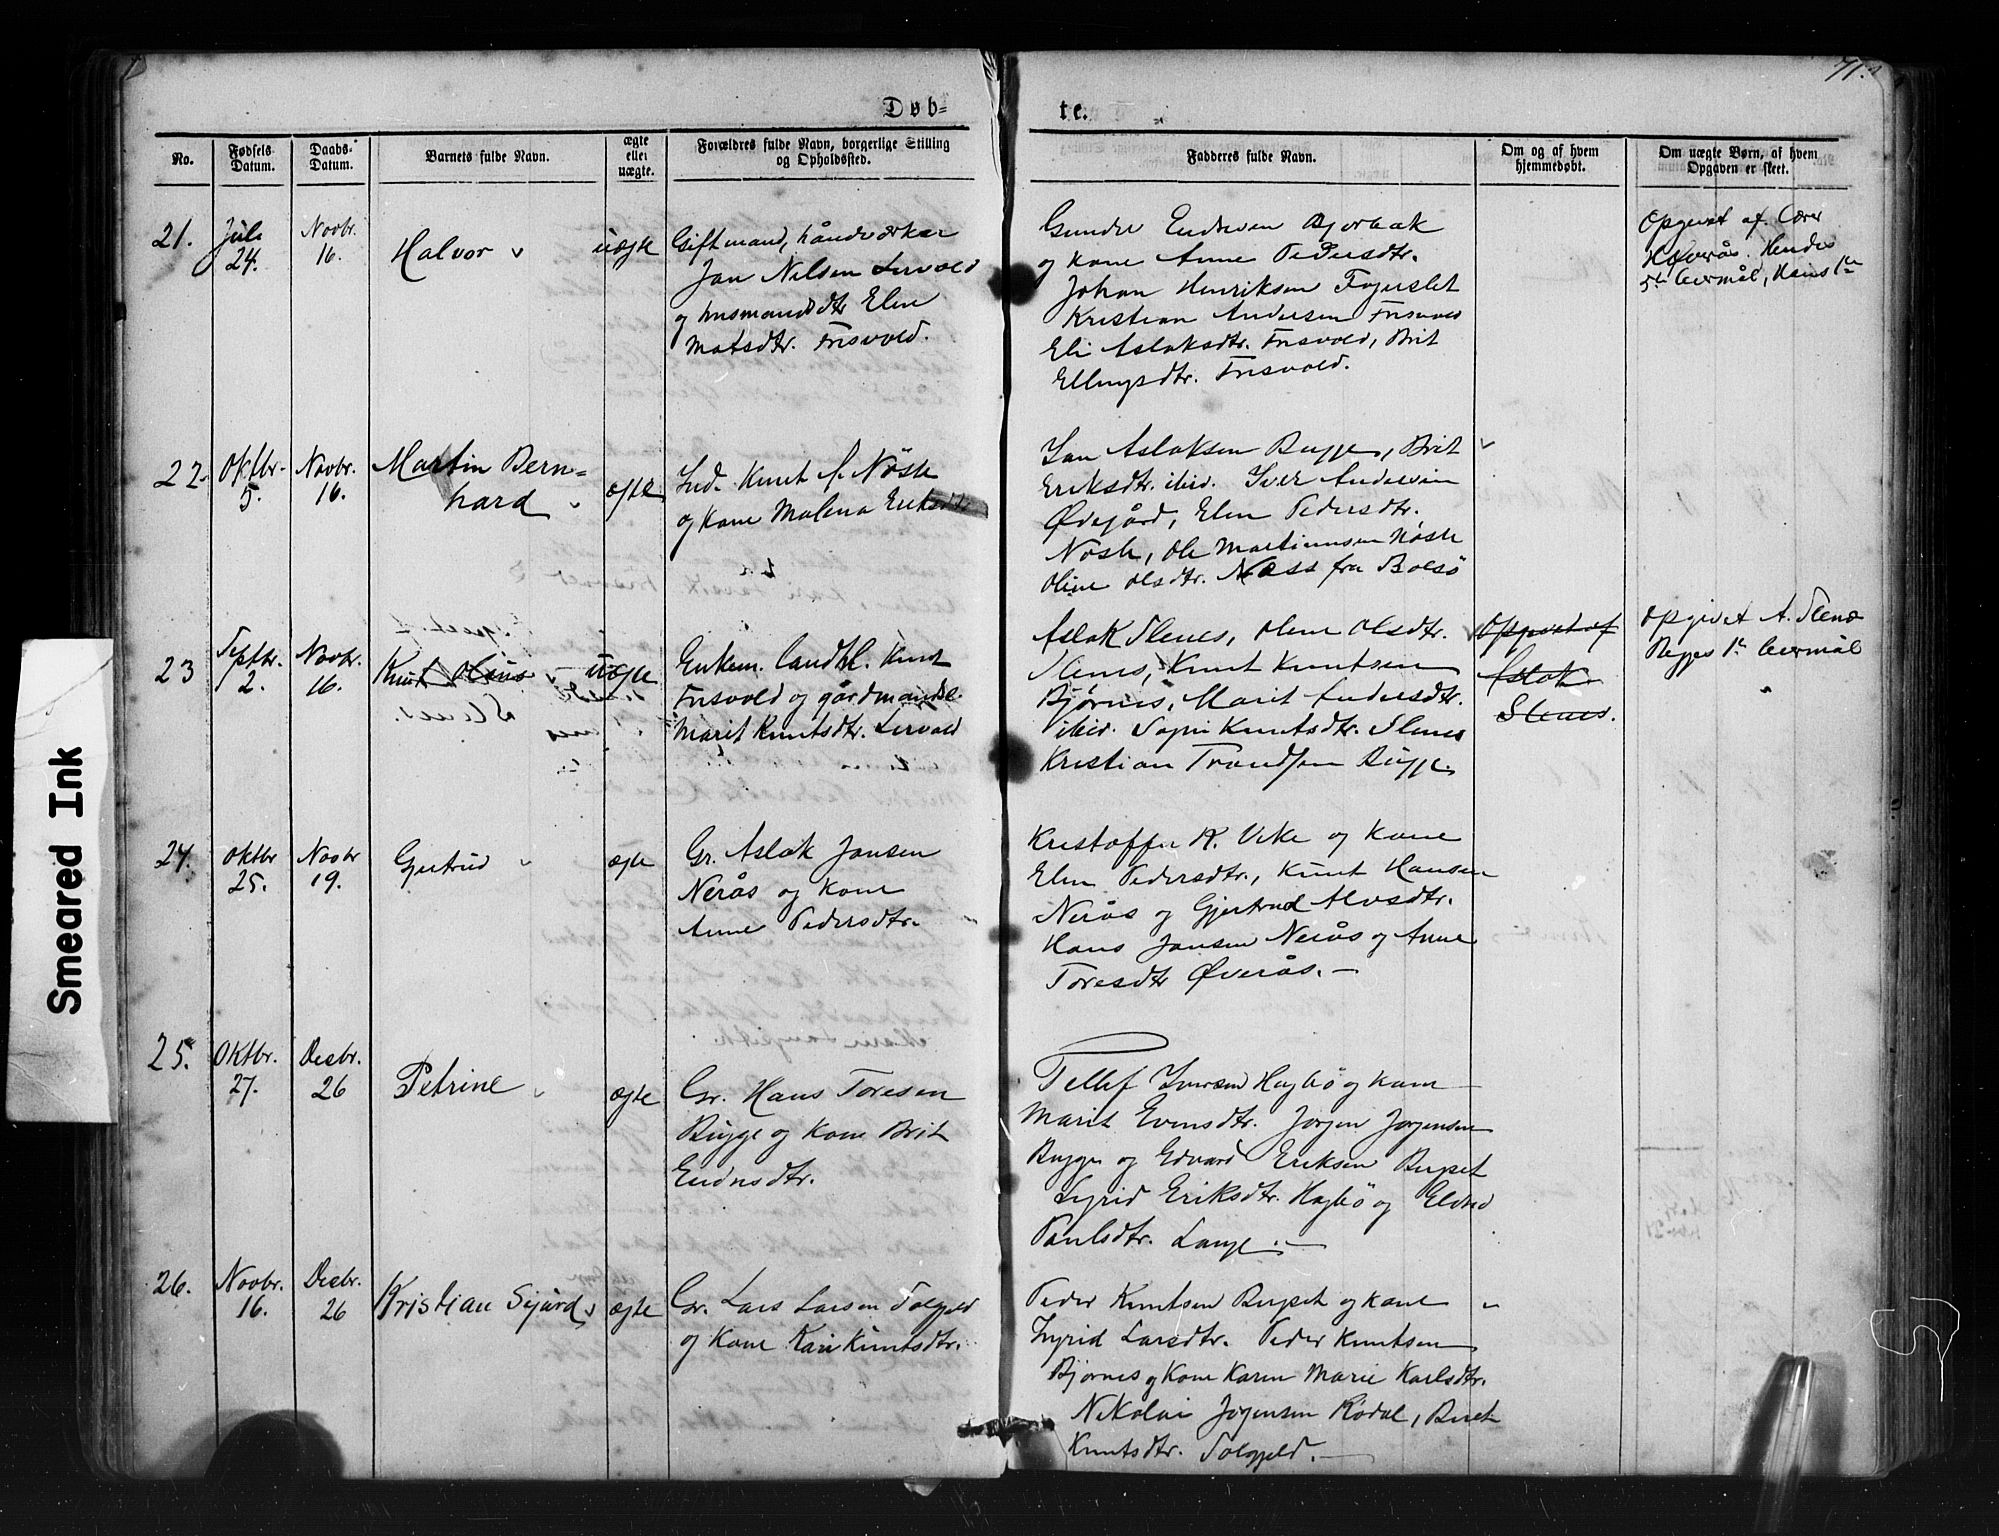 71.
Døb-
te.
No.
Fødsels Datum.
Daabs-Datum.
Barnets fulde Navn.
ægte eller uægte.
Forældres fulde Navn, borgerlige Stilling og Opholdssted.
Fadderes fulde Navn.
Om og af hvem hjemmedøbt.
Om uægte Børn, af hvem Opgaven er skeet.
21.
Juli 24.
Novbr. 16.
Halvor
uægte
Giftmand, håndværker
Jan Nilsen Lervold
og husmandsdtr Elen
Matsdtr. Frisvold.
Gunder Endresen Bjorbak
og kone Anne Pedersdtr.
Johan Henriksen Fogerslet
Kristian Andersen Frisvold
Eli Aslaksdtr. Frisvold, Brit
Ellingsdtr. Frisvold.
Opgivet af Lærer
Hendes
5te leiermål, Hans 1ste
22.
Oktbr. 5.
Novbr. 16.
Martin Bern=
hard
ægte
Ind. Knut A. Nøste
og kone Malena Eriksdtr
Jan Aslaksen Bugge, Brit
Eriksdtr. ibid. Iver Andersen
Ødegård, Elen Pedersdtr.
Nøste, Ole Martinusen Nøste
Oline Olsdtr. Næss fra Bolsø
23
Septbr. 2.
Novbr. 16.
Knut Olaus
uægte
Enkem. landhl. Knut
Frisvold og gårdmandsd.
Marit Knutsdtr. Lervold
Aslak Stenes, Olene Olsdtr.
Stenes, Knut Knutsen
Bjørnes, Marit Andersdtr.
ibid. Knutsdtr. Stenes
Kristian Trondsen Bugge.
Opgivet af
Aslak
Stenes.
Opgivet A. Stenes
1te leiermål
24.
Oktbr 25.
Novbr 19.
Gjertrud
ægte
Gr. Aslak Jansen
Nerås og kone
Anne Pedersdtr.
Kristoffer K. Vike og kone
Elen Pedersdtr., Knut Hansen
Nerås og Gjertrud Alvsdtr.
Hans Jansen Nerås og Anne
Toresdtr Øverås. —
25.
Oktbr. 27.
Desbr. 26
Petrine
ægte
Gr. Hans Toresen
Bugge og kone Brit
Endresdtr.
Tellef Iversen Hagbø og kone
Marit Evensdtr. Jørgen Jørgensen
Bugge og Edvard Eriksen Bugset
Sigrid Eriksdtr. Hagbø og
Paulsdtr. Lange. —
26.
Novbr. 16.
Desbr. 26
Kristian Sigurd
ægte
Gr. Lars Larsen Tolgjeld
og kone Kari Knutsdtr.
Peder Knutsen Bugset og kone
Ingrid Larsdtr. Peder Knutsen
Bjørnes og kone Karen Marie Karlsdtr.
Nikolai Jørgensen Rødal, Beret
Knutsdtr. Tolgjeld. —
Smeared Ink